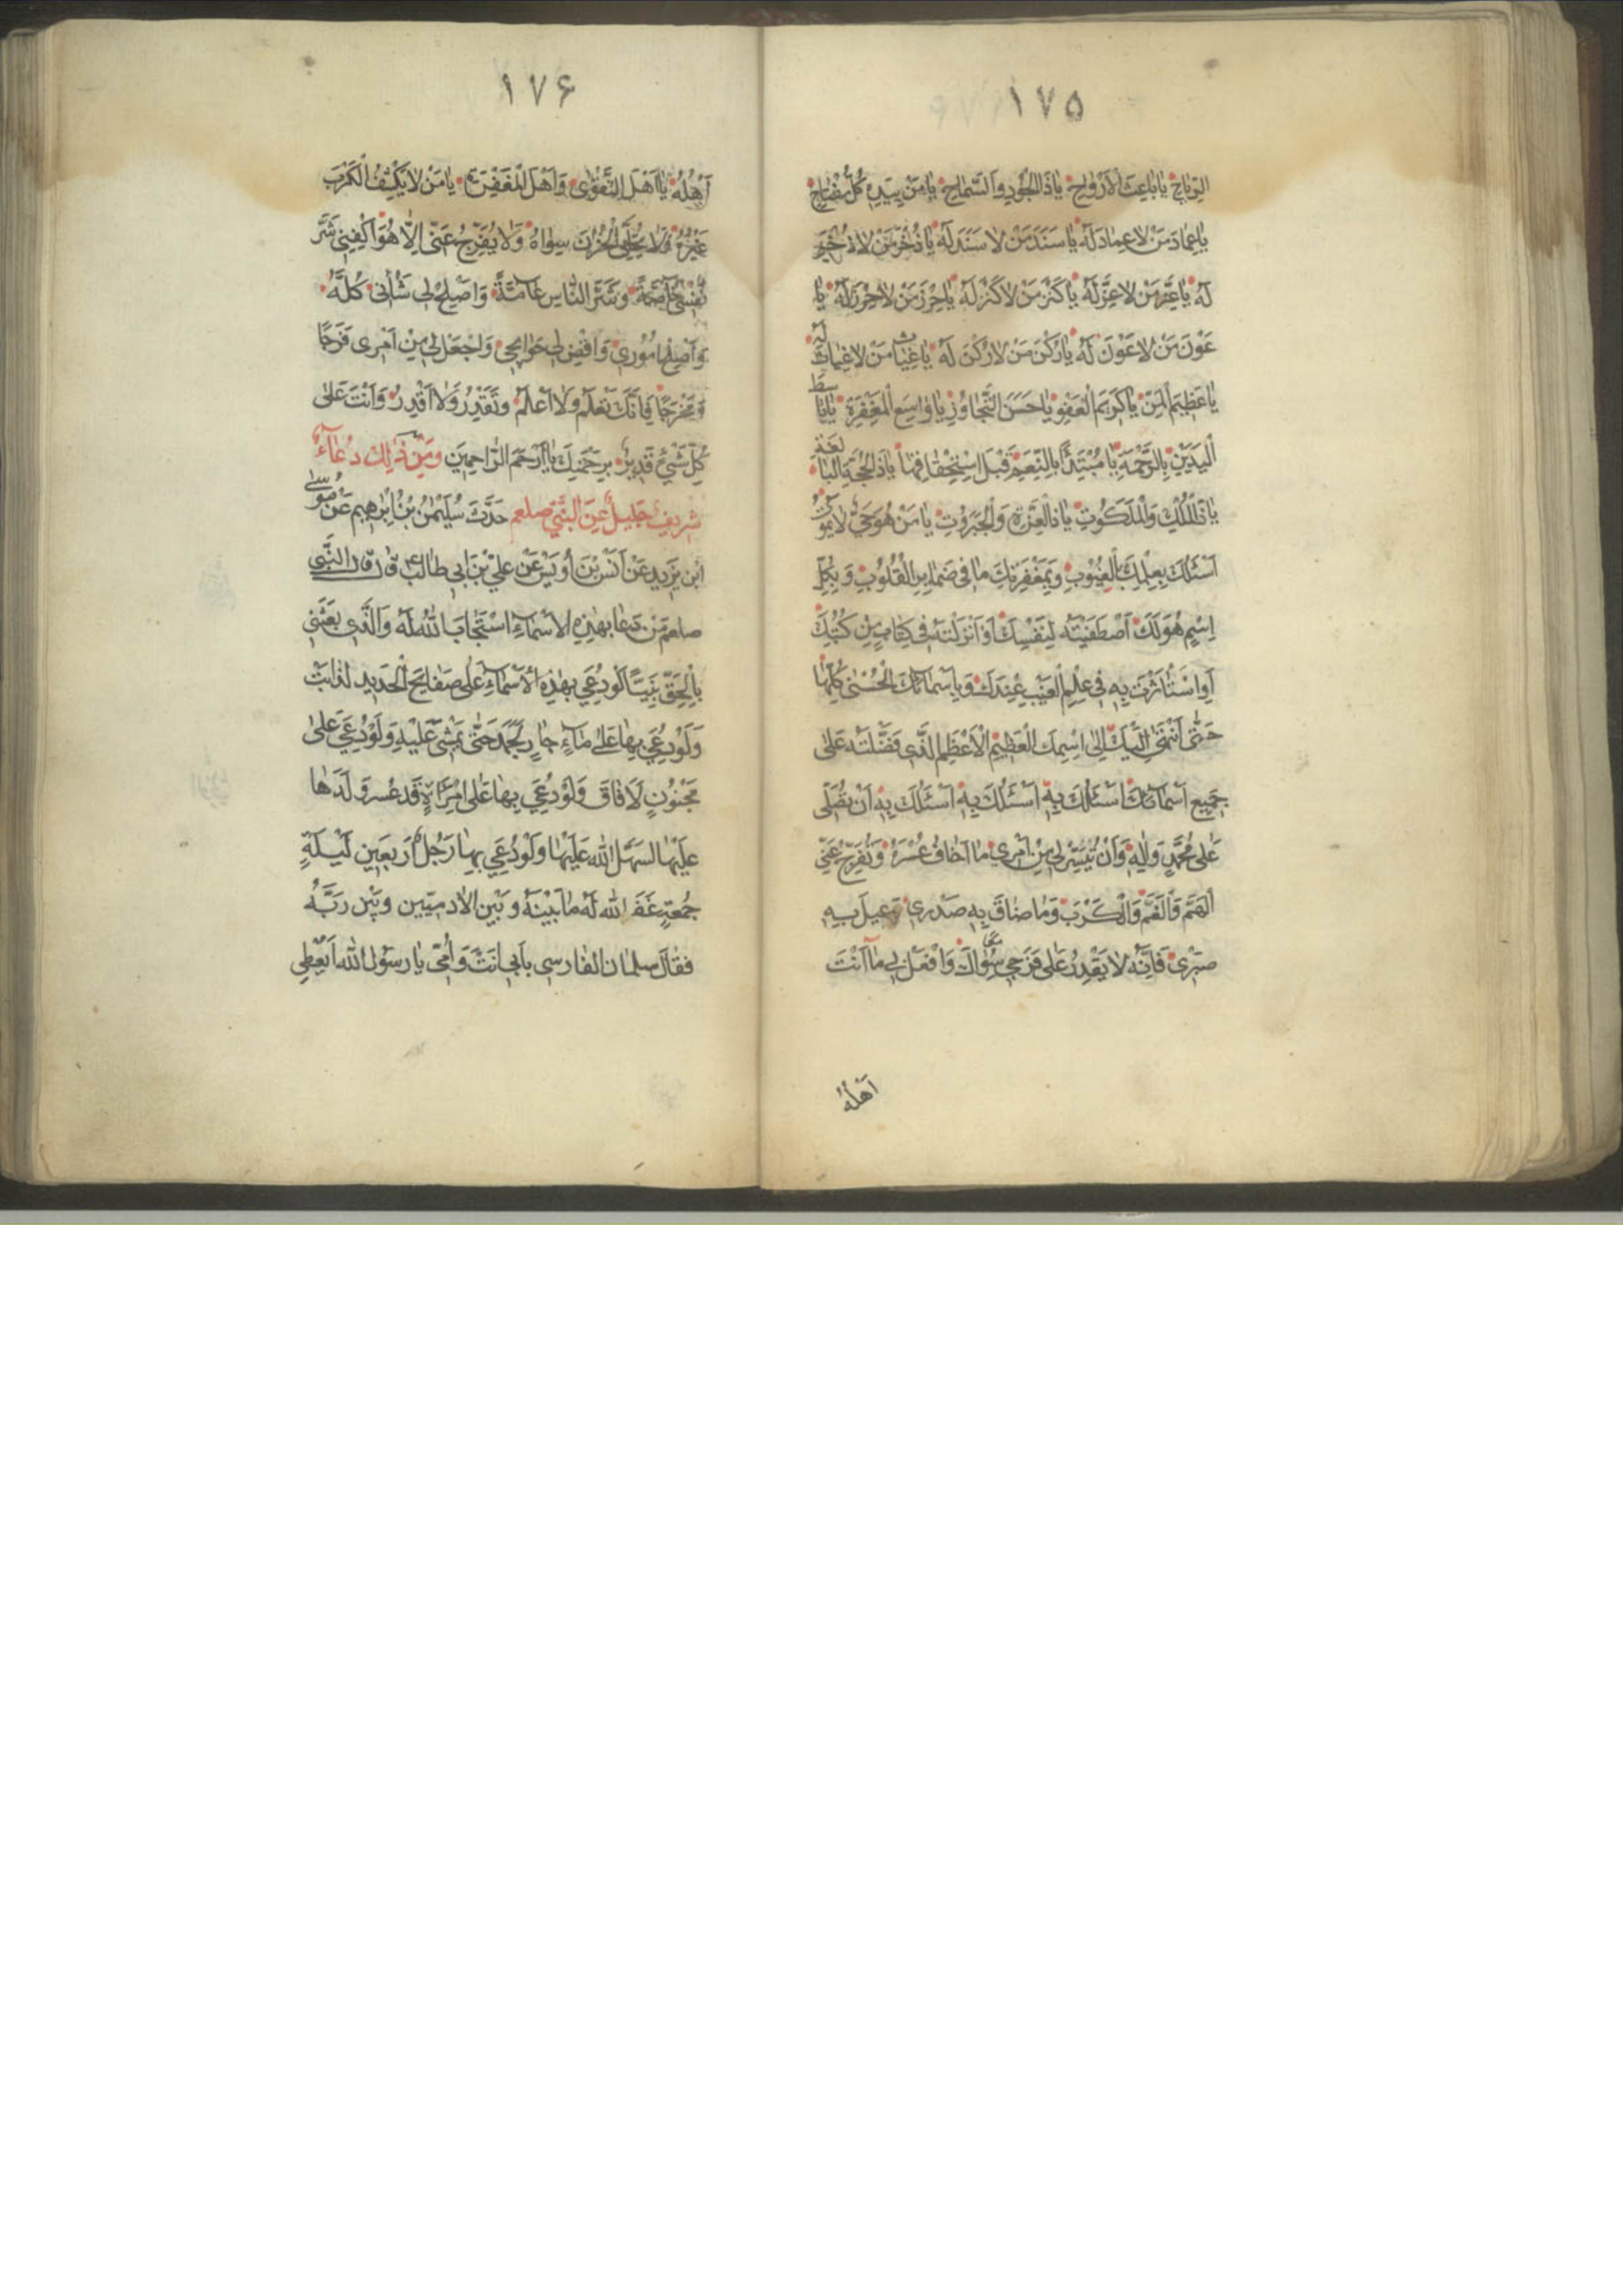 ١٧٥
الرِّيَاحِ يَا بَاعِثَ الْاَرْوَاحِ يَا ذَا الْجُودِ وَالسَّمَاحِ يَا مَنْ بِيَدِهِ كُلُّ مِفْتَاحٍ
يَا عِمَادَ مَنْ لَا عِمَادَ لَهُ يَا سَنَدَ مَنْ لَا سَنَدَ لَهُ يَا ذُخْرَ مَنْ لَا ذُخْرَ
لَهُ يَا عِزَّ مَنْ لَا عِزَّ لَهُ يَا كَنْزَ مَنْ لَا كَنْزَ لَهُ يَا حِرْزَ مَنْ لَا حِرْزَ لَهُ يَا
عَوْنَ مَنْ لَا عَوْنَ لَهُ يَا رُكْنَ مَنْ لَا رُكْنَ لَهُ يَا غِيَاثَ مَنْ لَا غِيَاثَ لَهُ
يَا عَظِيمَ الْمَنِّ يَا كَرِيمَ الْعَفْوِ يَا حَسَنَ التَّجَاوُزِ يَا وَاسِعَ الْمَغْفِرَةِ يَا بَاسِطَ
الْيَدَيْنِ بِالرَّحْمَةِ يَا مُبْتَدِئًا بِالنِّعَمِ قَبْلَ اسْتِحْقَاقِهَا يَا ذَا الْحُجَّةِ الْبَالِغَةِ
يَا ذَا الْمُلْكِ وَالْمَلَكُوتِ يَا ذَا الْعِزَّةِ وَالْجَبَرُوتِ يَا مَنْ هُوَ حَيٌّ لَا يَمُوتُ
اَسْئَلُكَ بِعِلْمِكَ الْغُيُوبِ وَبِمَعْفِرَتِكَ مَا فِي ضَمَايِرِ الْقُلُوبِ وَبِكُلِّ
اِسْمٍ هُوَ لَكَ اصْطَفَيْتَهُ لِنَفْسِكَ اَوْ اَنْزَلْتَهُ فِي كِتَابٍ مِنْ كُتُبِكَ
اَوِ اسْتَأْثَرْتَ بِهِ فِي عِلْمِ الْغَيْبِ عِنْدَكَ وَبِاَسْمَائِكَ الْحُسْنَى كُلِّهَا
حَتَّى اَنْتَهِيَ اِلَيْكَ اِلَى اسْمِكَ الْعَظِيمِ الْاَعْظَمِ الَّذِي فَضَّلْتَهُ عَلَى
جَمِيعِ اَسْمَائِكَ اَسْئَلُكَ بِهِ اَسْئَلُكَ بِهِ اَسْئَلُكَ بِهِ اَنْ تُصَلِّيَ
عَلَى مُحَمَّدٍ وَالِهِ وَاَنْ تُيَسِّرَ لِي مِنْ اَمْرِي مَا اَخَافُ عُسْرَهُ وَتُفَرِّجَ عَنِّي
الْهَمَّ وَالْغَمَّ وَالْكَرْبَ وَمَا ضَاقَ بِهِ صَدْرِي وَعِيلَ بِهِ
صَبْرِي فَاِنَّهُ لَا يَقْدِرُ عَلَى فَرَجِي سِوَاكَ وَافْعَلْ بِي مَا اَنْتَ
اَهْلُهُ
١٧۶
اَهْلُهُ يَا اَهْلَ التَّقْوَى وَاَهْلَ الْمَغْفِرَةِ يَا مَنْ لَا يَكْشِفُ الْكَرْبَ
غَيْرُهُ وَلَا يُجَلِّي الْحُزْنَ سِوَاهُ وَلَا يُفَرِّجُ عَنِّي اِلَّا هُوَ اكْفِنِي شَرَّ
نَفْسِي خَاصَّةً وَشَرَّ النَّاسِ عَامَّةً وَاصْلِحْ لِي شَأْنِي كُلَّهُ
وَاَصْلِحْ اُمُورِي وَاقْضِ لِي حَوَائِجِي وَاجْعَلْ لِي مِنْ اَمْرِي فَرَجًا
وَمَخْرَجًا فَاِنَّكَ تَعْلَمُ وَلَا اَعْلَمُ وَتَقْدِرُ وَلَا اَقْدِرُ وَاَنْتَ عَلَى
كُلِّ شَيْءٍ قَدِيرٌ بِرَحْمَتِكَ يَا اَرْحَمَ الرَّاحِمِينَ وَمِنْ ذَلِكَ دُعَاءٌ
شَرِيفٌ جَلِيلٌ عَنِ النَّبِيِّ صلعم حَدَّثَ سُلَيْمٰنُ بْنُ اِبْرٰهِيمَ عَنْ مُوسَى
ابْنِ يَزِيدِ عَنْ اَنَسِ بْنِ اُوَيْسٍ عَنْ عَلِيِّ بْنِ اَبِي طَالِبٍ ع قال قال النَّبِيُّ
صلعم مَنْ دَعَا بِهٰذِهِ الْاَسْمَاءِ اسْتَجَابَ اللهُ لَهُ وَالَّذِي بَعَثَنِي
بِالْحَقِّ نَبِيًّا لَوْ دُعِيَ بِهٰذِهِ الْاَسْمَاءِ عَلَى صَفَايِحِ الْحَدِيدِ لَذَابَتْ
وَلَوْ دُعِيَ بِهَا عَلَى مَاءٍ جَارٍ لَجَمَدَ حَتَّى يَمْشِيَ عَلَيْهِ وَلَوْ دُعِيَ عَلَى
مَجْنُونٍ لَاَفَاقَ وَلَوْ دُعِيَ بِهَا عَلَى امْرَاَةٍ قَدْ عَسُرَ وَلَدُهَا
عَلَيْهَا لَسَهَّلَ اللهُ عَلَيْهَا وَلَوْ دُعِيَ بِهَا رَجُلٌ اَرْبَعِينَ لَيْلَةٍ
جُمُعَةٍ غَفَرَ اللهُ لَهُ مَا بَيْنَهُ وَبَيْنَ الْاٰدَمِيِّينَ وَبَيْنَ رَبِّهُ
فَقَالَ سلمان الفارسى بِاَبِي اَنْتَ وَاُمِّي يَا رَسُولَ اللهِ اَيُعْطِي